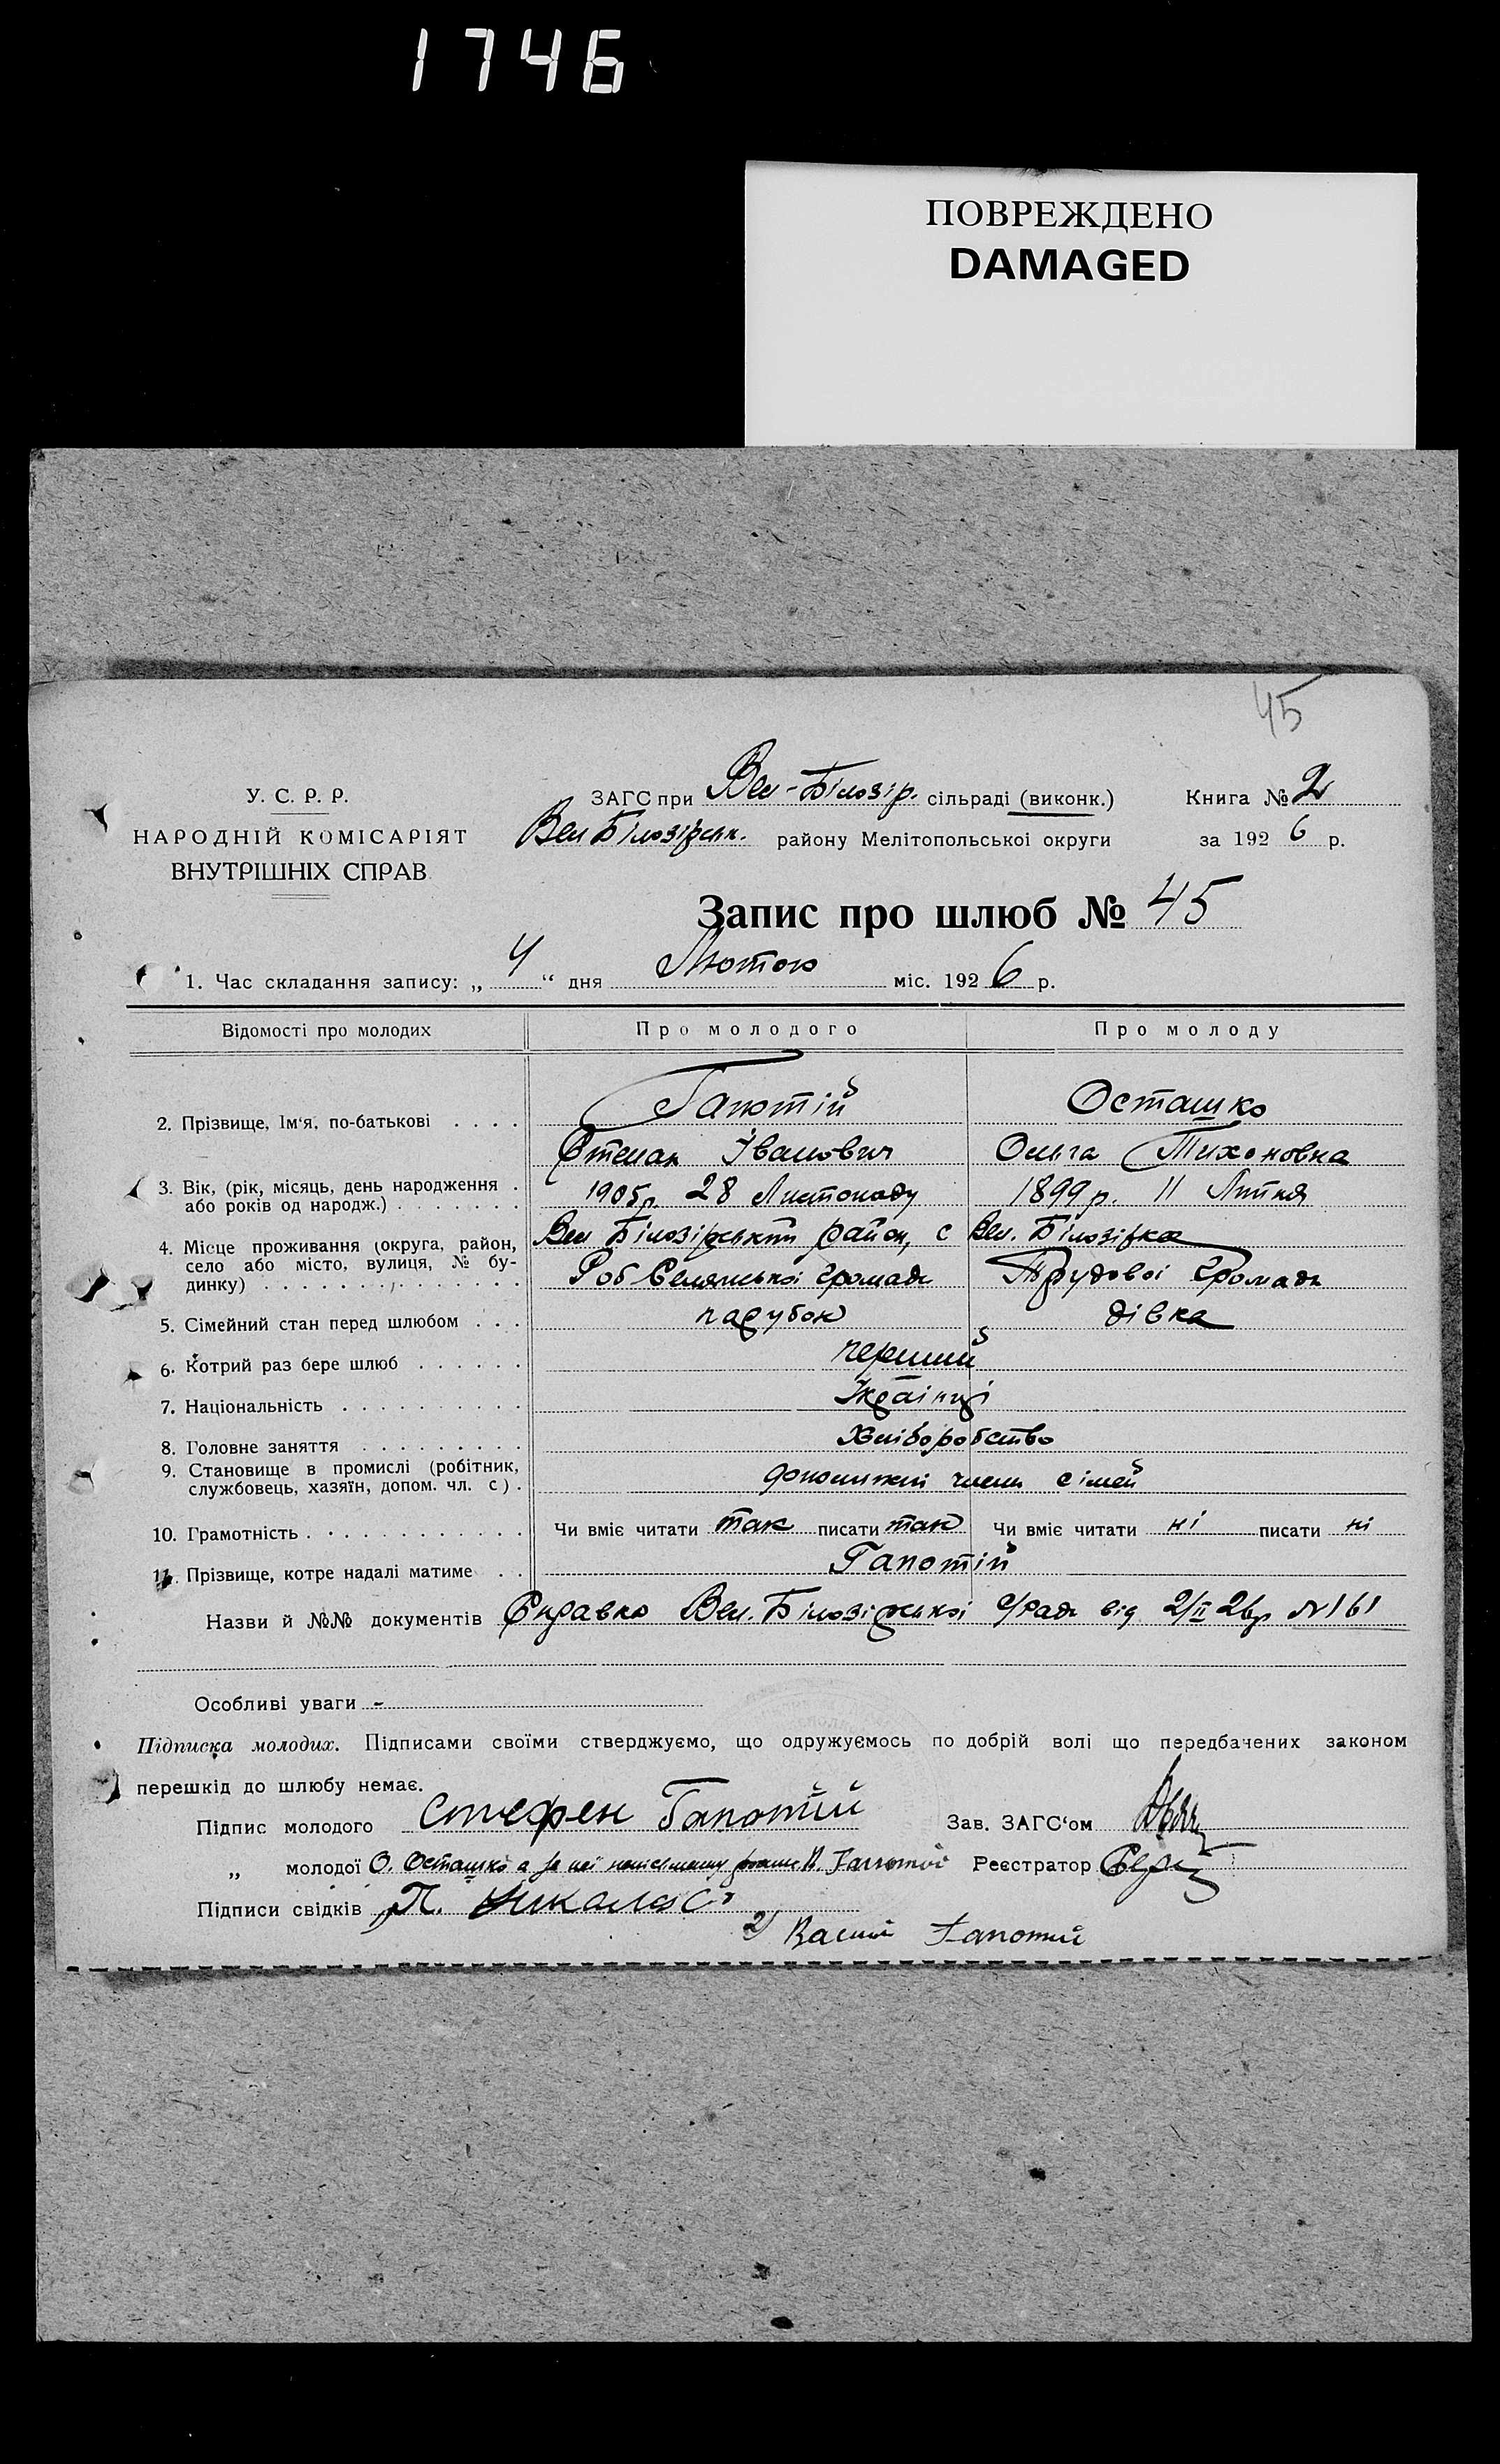 1746
ПОВРЕЖДЕНО
DAMAGED
45
У. С. Р. Р.
НАРОДНІЙ КОМІСАРІЯТ
ВНУТРІШНІХ СПРАВ
ЗАГС при Вел-Білозір. сільраді (виконк.)
Вел Білозірськ. району Мелітопольської округи
Книга № 2
за 1926 р.
Запис про шлюб № 45
1. Час складання запису: „4“ дня Лютого міс. 1926 р.
Відомості про молодих Про молодого Про молоду
2. Прізвище, Ім'я, по-батькові . . . . Гапотій Осташко
Степан Іванович Ольга Тихоновна
3. Вік, (рік, місяць, день народження . або років од народж.) . . . . . . . 1905р. 28 Листопаду 1899 р. 11 Липня
4. Місце проживання (округа, район, село або місто, вулиця, № будинку) . . . . . . . . . . . . . Вел Білозірський район, с Вел. Білозірка
Роб Селянської громади Трудової громади
5. Сімейний стан перед шлюбом . . . парубок дівка
6. Котрий раз бере шлюб . . . . . . перший
7. Національність . . . . . . . . . . Українці
8. Головне заняття . . . . . . . . . Хліборобство
9. Становище в промислі (робітник, службовець, хазяїн, допом. чл. с.) . допоміжні члени сімей
10. Грамотність . . . . . . . . . . . . Чи вміє читати так писати так Чи вміє читати ні писати ні
11. Прізвище, котре надалі матиме . . Гапотій
Назви й №№ документів Справка Вел. Білозірської с/ради від 2/II 26р № 161
Особливі уваги -
Підписка молодих. Підписами своїми стверджуємо, що одружуємось по добрій волі що передбачених законом
перешкід до шлюбу немає.
Підпис молодого Стефен Гапотій Зав. ЗАГС'ом
„ молодої О. Осташко а за неї неписьменну Гапотій Реєстратор
Підписи свідків П. Николас
2) Василь Гапотий